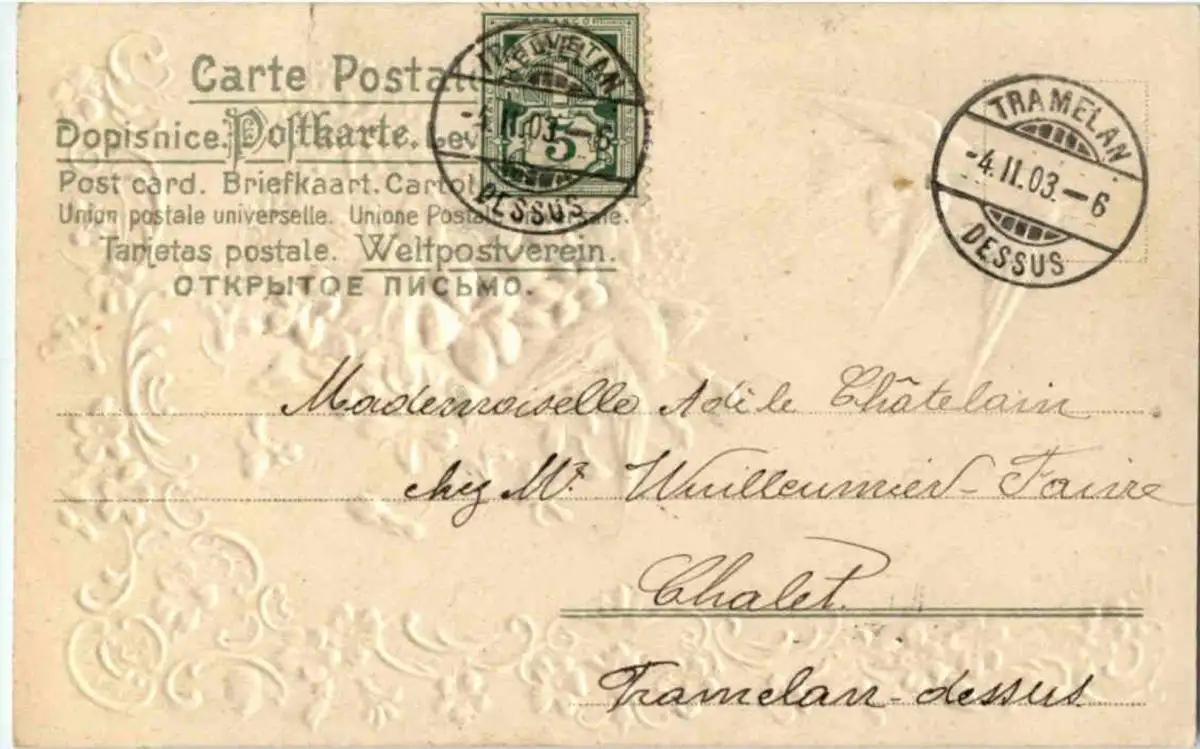 Carte Postale
Dopisnice. Postkarte. Lev
Post card. Briefkaart. Cartol
Union postale universelle. Unione Postale
Tarjetas postale. Weltpostverein.
ОТКРЫТОЕ ПИСЬМО.
HELVETIA
5
TRAMELAN
-4.II.03.-6
DESSUS
TRAMELAN
-4.II.03.-6
DESSUS
Mademoiselle Adèle Châtelain
chez Mr. Wuilleumier-Faivre
Chalet.
Tramelan-dessus.